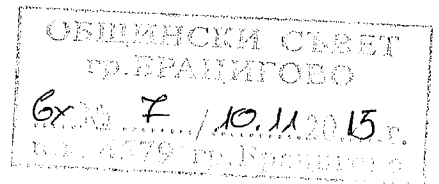 ОБЩИНСКИ СЪВЕТ
гр.БРАЦИГОВО
Вх.№ 7 / 10.11.2015.г.
п.к. 4579 гр.Брацигово